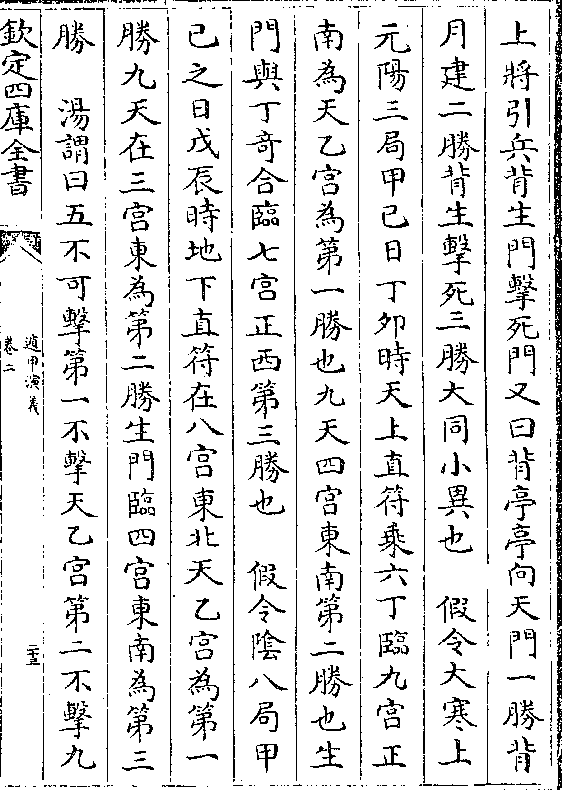 上將引兵背生門擊死門又曰背亭亭向天門一勝背
月建二勝背生擊死三勝大同小異也　假令大寒上
元陽三局甲己日丁夘時天上直符乗六丁臨九宫正
南為天乙宫為第一勝也九天四宫東南第二勝也生
門與丁竒合臨七宫正西第三勝也　假令陰八局甲
已之日戊辰時地下直符在八宫東北天乙宫為第一
勝九天在三宫東為第二勝生門臨四宫東南為第三
勝　湯謂曰五不可擊第一不擊天乙宫第二不擊九
欽定四庫全書
遁甲演義
卷二
二十三